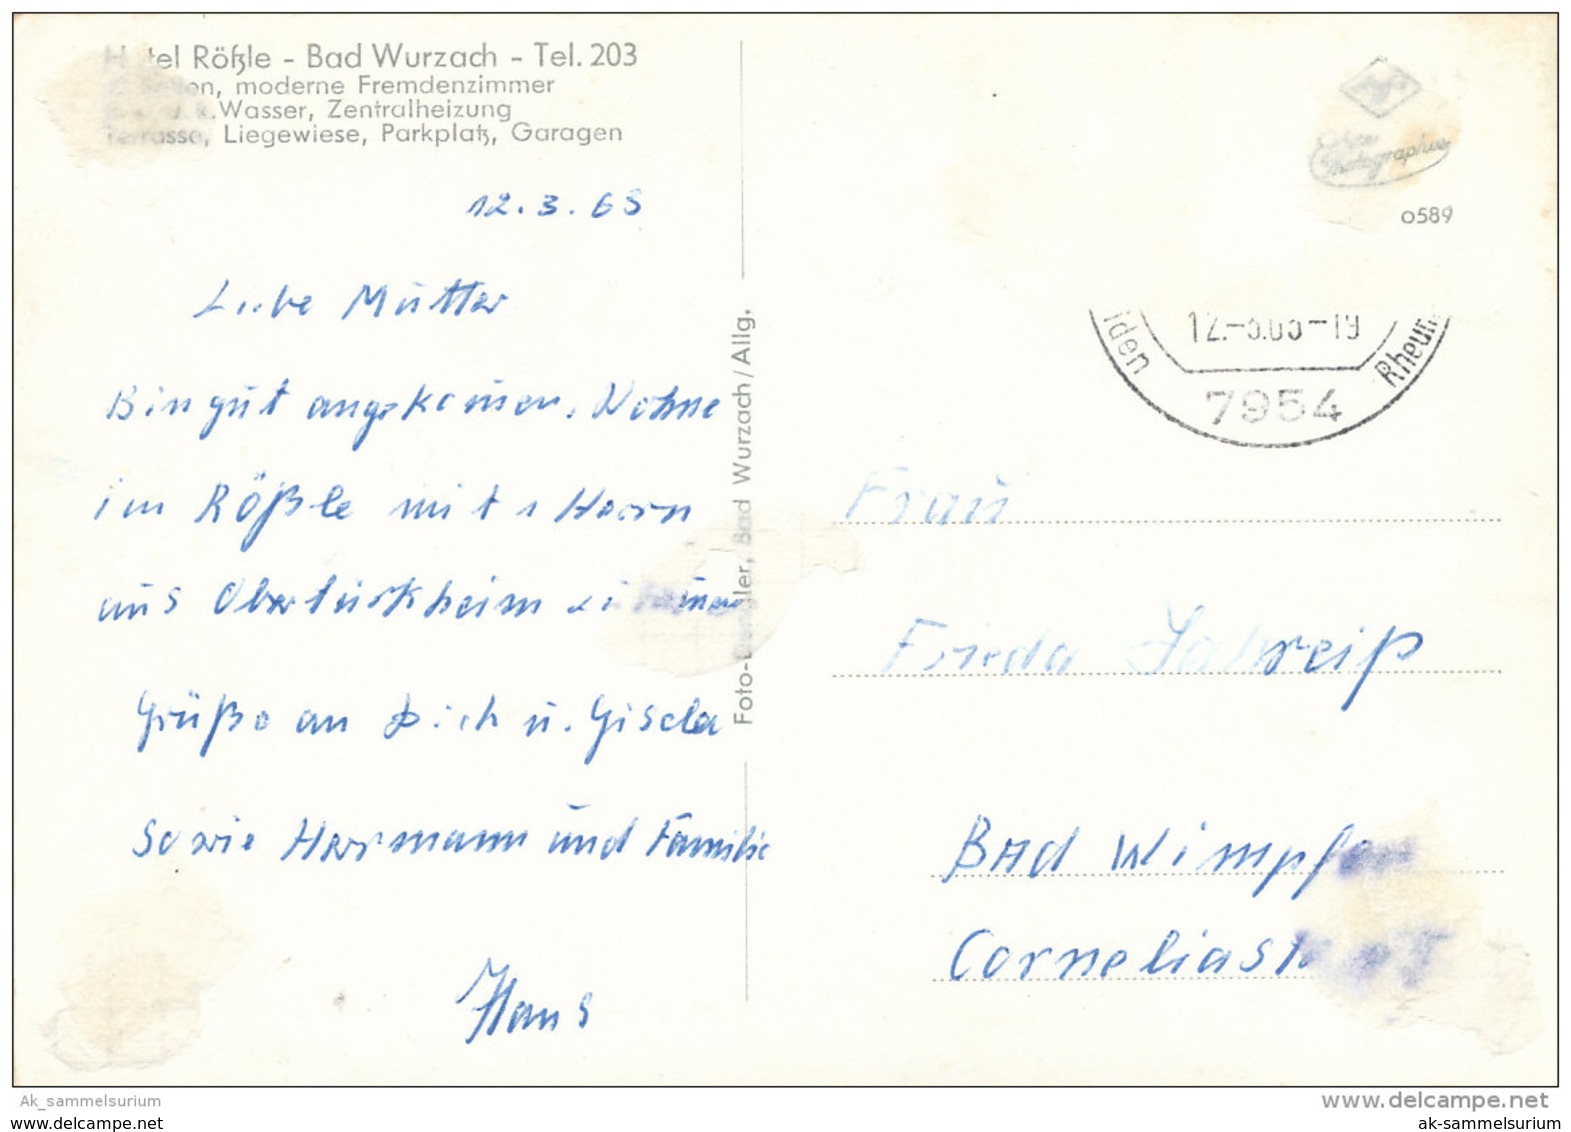 Hotel Rößle - Bad Wurzach - Tel. 203
moderne Fremdenzimmer
k. Wasser, Zentralheizung
Terrasse, Liegewiese, Parkplatz, Garagen
12.3.63
Liebe Mutter
Bin gut angekommen. Wohne
im Rößle mit 1 Herrn
aus Obertürkheim
Grüße an Dich u. Gisela
sowie Herrmann und Familie
Hans
Bad Wurzach/Allg.
Echte
Photographie
o589
iden
12.-3.63-19
Rheum
7954
Frau
Frieda Jahreiß
Bad Wimpfen
ak_sammelsurium
www.delcampe.net
ak-sammelsurium